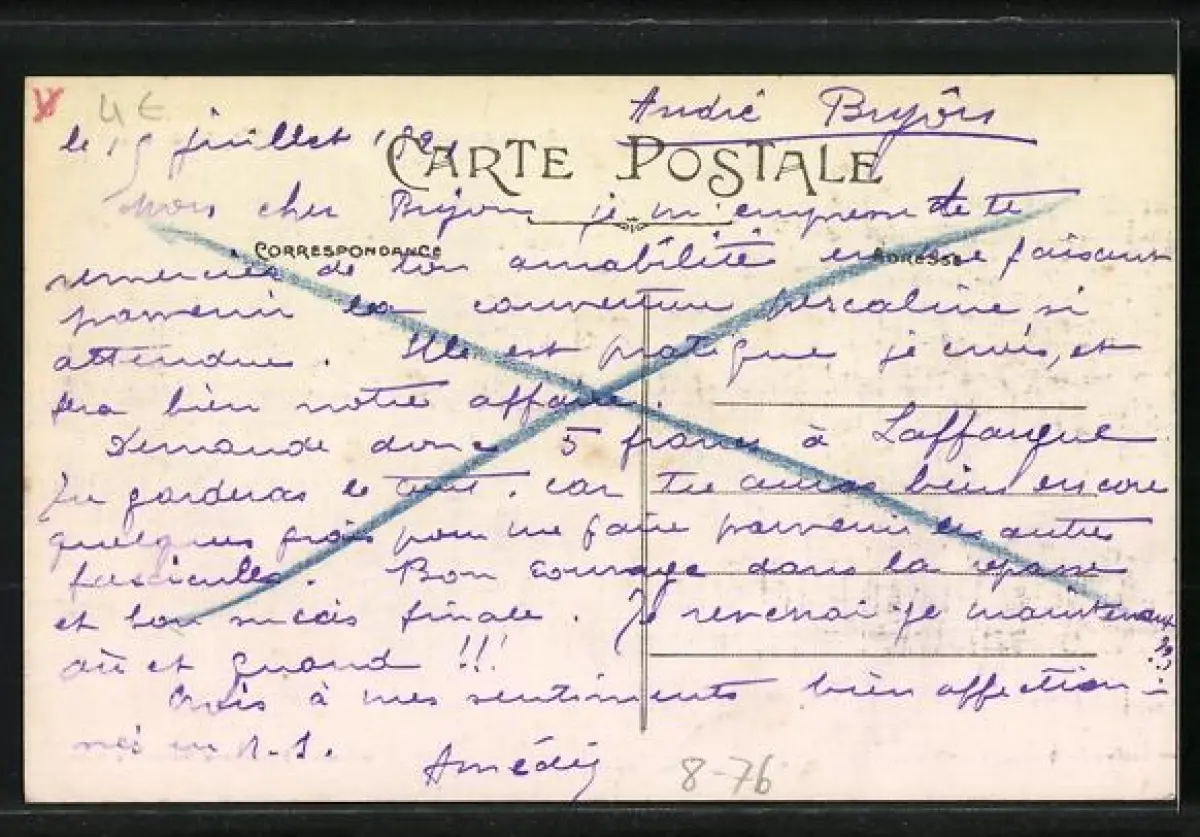 4 €
André Bryôis
le 15 juillet 192
CARTE POSTALE
Mon cher Bryois je m'empresse de te
CORRESPONDANCE
ADRESSE
remercier de ton amabilité en me faisant
parvenir la couverture percaline si
attendue. Elle est pratique je crois, et
fera bien notre affaire.
Demande donc 5 francs à Laffargue
Tu garderas le tout, car tu auras bien encore
quelques frais pour me faire parvenir les autres
fascicules. Bon courage dans la repasse
et bon succès finale. Te reverrai-je maintenant
où et quand !!!
Crois à mes sentiments bien affection-
nés en
Amédée
8-76